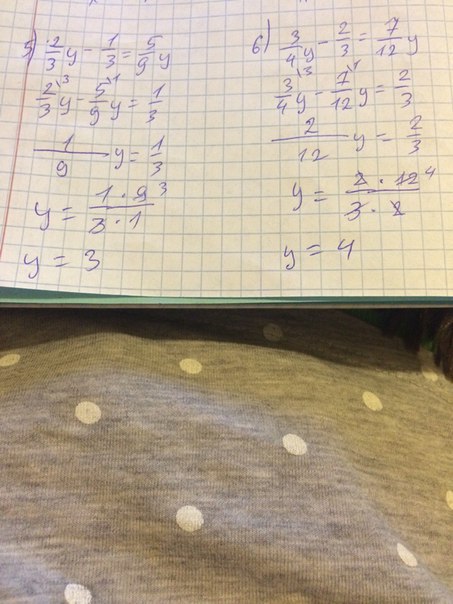 5) 2/3 y - 1/3 = 5/9 y
2/3 \3 y - 5/9 \1 y = 1/3
1/9 y = 1/3
y = 1 · 9 3 / 3 · 1
y = 3
6) 3/4 y - 2/3 = 7/12 y
3/4 \3 y - 7/12 \1 y = 2/3
2/12 y = 2/3
y = 2 · 12 4 / 3 · 2
y = 4